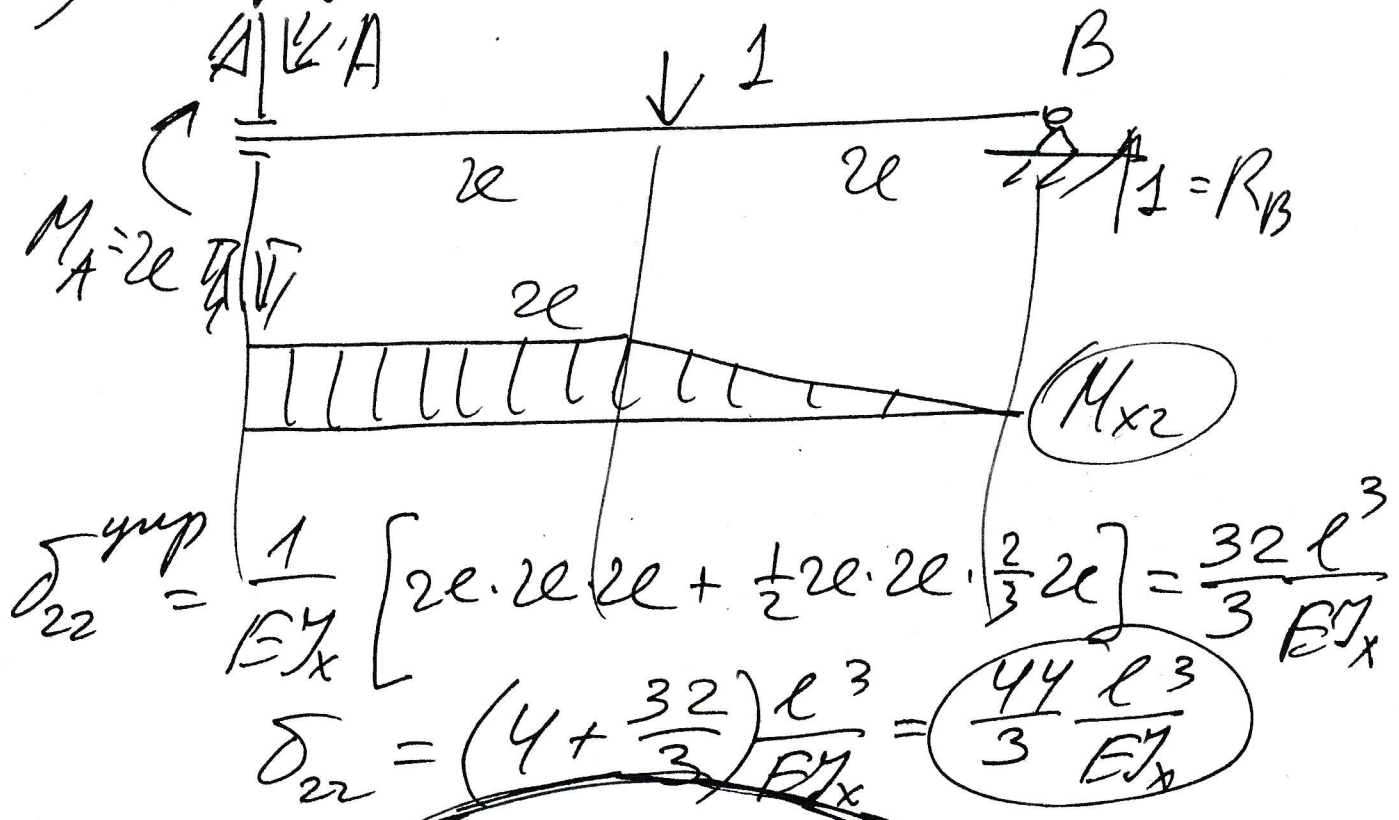 A A
1
B
2ℓ
2ℓ
1 = R_B
M_A = 2ℓ
2ℓ
M_x2
δ_22^упр = 1/EJ_x [2ℓ·2ℓ·2ℓ + 1/2 2ℓ·2ℓ·2/3 2ℓ] = 32/3 ℓ^3/EJ_x
δ_22 = (4 + 32/3) ℓ^3/EJ_x = 44/3 ℓ^3/EJ_x